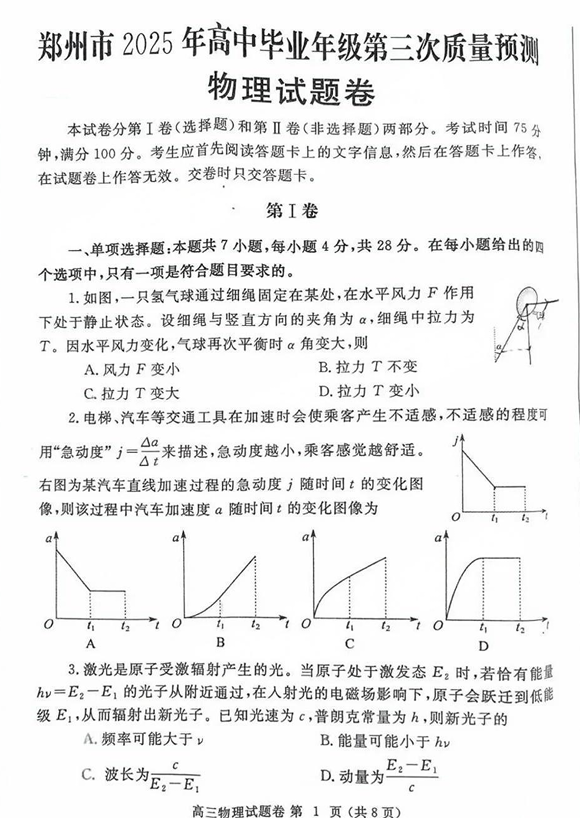 郑州市 2025 年高中毕业年级第三次质量预测
物理试题卷
本试卷分第Ⅰ卷(选择题)和第Ⅱ卷(非选择题)两部分。考试时间 75 分
钟,满分 100 分。考生应首先阅读答题卡上的文字信息,然后在答题卡上作答,
在试题卷上作答无效。交卷时只交答题卡。
第Ⅰ卷
一、单项选择题:本题共 7 小题,每小题 4 分,共 28 分。在每小题给出的四
个选项中,只有一项是符合题目要求的。
1. 如图,一只氢气球通过细绳固定在某处,在水平风力 F 作用
下处于静止状态。设细绳与竖直方向的夹角为 α,细绳中拉力为
T。因水平风力变化,气球再次平衡时 α 角变大,则
α
α
A. 风力 F 变小 B. 拉力 T 不变
C. 拉力 T 变大 D. 拉力 T 变小
2. 电梯、汽车等交通工具在加速时会使乘客产生不适感,不适感的程度可
用“急动度” j=Δa/Δt来描述,急动度越小,乘客感觉越舒适。
右图为某汽车直线加速过程的急动度 j 随时间 t 的变化图
像,则该过程中汽车加速度 a 随时间 t 的变化图像为
j
O t₁ t₂ t
a a a a
O t₁ t₂ t O t₁ t₂ t O t₁ t₂ t O t₁ t₂ t
A B C D
3. 激光是原子受激辐射产生的光。当原子处于激发态 E₂ 时,若恰有能量
hν=E₂-E₁ 的光子从附近通过,在入射光的电磁场影响下,原子会跃迁到低能
级 E₁,从而辐射出新光子。已知光速为 c,普朗克常量为 h,则新光子的
A. 频率可能大于 ν B. 能量可能小于 hν
C. 波长为c/(E₂-E₁) D. 动量为(E₂-E₁)/c
高三物理试题卷 第 1 页 (共 8 页)